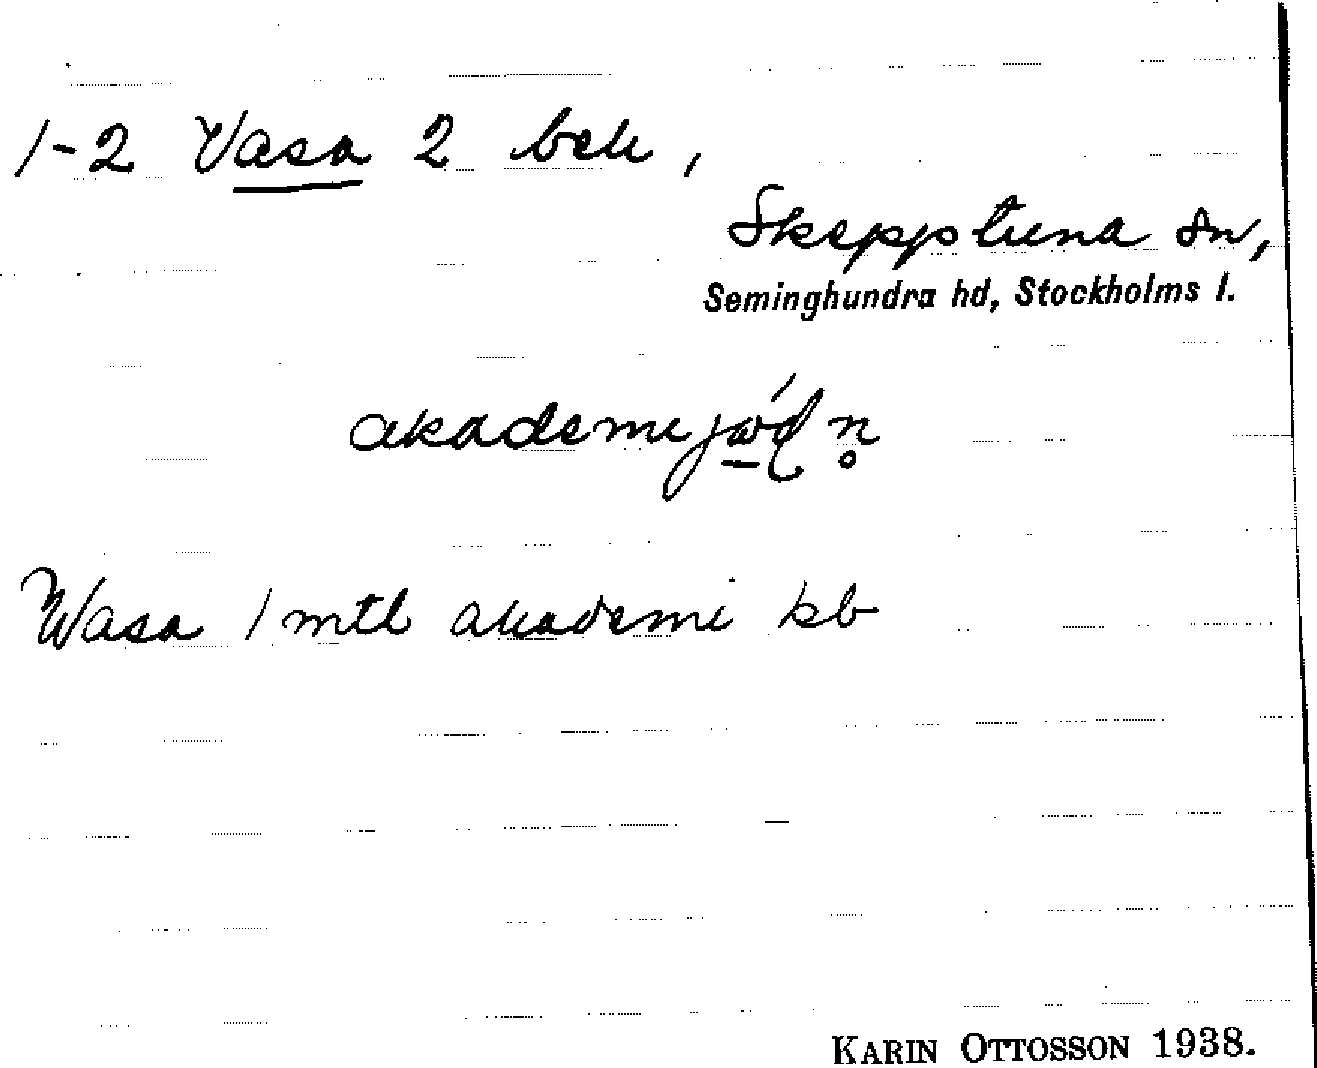 1-2 Vasa 2 bek,
Skepptuna sn,
Seminghundra hd, Stockholms l.
Wasa 1 mtl akademi kb
KARIN OTTOSSON 1938.